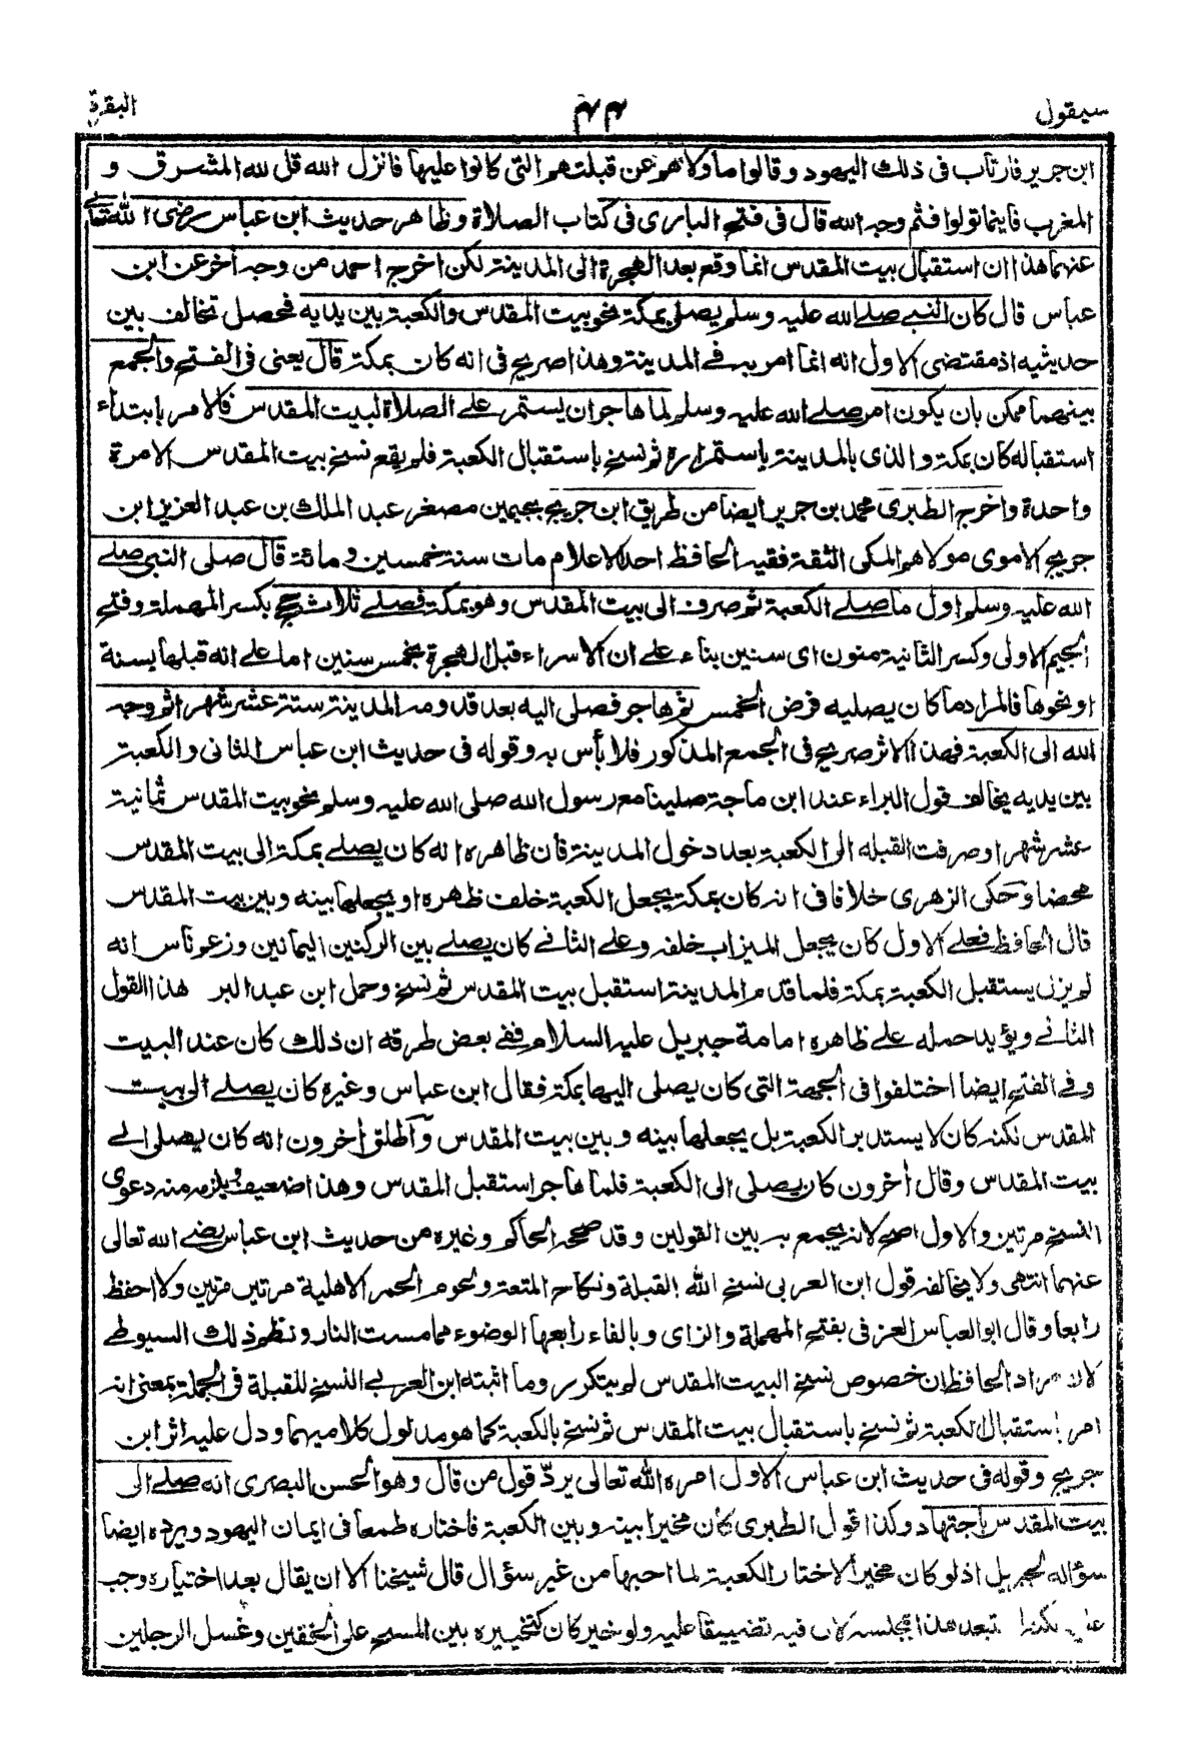 سيقول
٤٤
البقرة
ابن جرير فارتاب في ذلك اليهود وقالوا ما ولاهم عن قبلتهم التي كانوا عليها فانزل الله قل لله المشرق و
المغرب فاينما تولوا فثم وجه الله قال في فتح الباري في كتاب الصلاة وظاهر حديث ابن عباس رضى الله تعالى
عنهما هذا ان استقبال بيت المقدس انما وقع بعد الهجرة الى المدينة لكن اخرج احمد من وجه آخر عن ابن
عباس قال كان النبي صلى الله عليه وسلم يصلى بمكة نحو بيت المقدس والكعبة بين يديه فحصل تخالف بين
حديثيه اذ مقتضى الاول انه انما امر به في المدينة وهذا صريح في انه كان بمكة قال يعنى في الفتح والجمع
بينهما ممكن بان يكون امر صلى الله عليه وسلم لما هاجر ان يستمر على الصلاة لبيت المقدس فالامر بابتداء
استقباله كان بمكة والذى بالمدينة باستمراره ثم نسخ باستقبال الكعبة فلم يقع نسخ بيت المقدس الا مرة
واحدة واخرج الطبرى محمد بن جرير ايضا من طريق ابن جريج بجيمين مصغر عبد الملك بن عبد العزيز ابن
جريج الاموى مولاهم المكى الثقة فقيه الحافظ احد الاعلام مات سنة خمسين ومائة قال صلى النبي صلى
الله عليه وسلم اول ما صلى الكعبة ثم صرف الى بيت المقدس وهو بمكة فصلى ثلاث حجج بكسر المهملة وفتح
الجيم الاولى وكسر الثانية منون اى سنين بناء على ان الاسراء قبل الهجرة بخمس سنين اما على انه قبلها بسنة
او نحوها فالمراد ما كان يصليه فرض الخمس ثم هاجر فصلى اليه بعد قدومه المدينة ستة عشر شهرا ثم وجه
الله الى الكعبة فهذا الاثر صريح في الجمع المذكور فلا بأس به وقوله في حديث ابن عباس الثانى والكعبة
بين يديه يخالف قول البراء عند ابن ماجة صلينا مع رسول الله صلى الله عليه وسلم نحو بيت المقدس ثمانية
عشر شهرا وصرفت القبله الى الكعبة بعد دخول المدينة فان ظاهره انه كان يصلى بمكة الى بيت المقدس
محضا وحكى الزهرى خلافا فى انه كان بمكة يجعل الكعبة خلف ظهره او يجعلها بينه وبين بيت المقدس
قال الحافظ فعلى الاول كان يجعل الميزاب خلفه وعلى الثانى كان يصلى بين الركنين اليمانين وزعم ناس انه
لم يزل يستقبل الكعبة بمكة فلما قدم المدينة استقبل بيت المقدس ثم نسخ وحمل ابن عبد البر هذا القول
الثانى ويؤيد حمله على ظاهره امامة جبريل عليه السلام ففى بعض طرقه ان ذلك كان عند البيت
وفى الفتح ايضا اختلفوا فى الجهة التى كان يصلى اليها بمكة فقال ابن عباس وغيره كان يصلى الى بيت
المقدس لكنه كان لا يستدبر الكعبة بل يجعلها بينه وبين بيت المقدس وأطلق أخرون انه كان يصلى الى
بيت المقدس وقال أخرون كان يصلى الى الكعبة فلما هاجر استقبل المقدس وهذا ضعيف ويلزم منه دعوى
النسخ مرتين والاول اصح لانه يجمع به بين القولين وقد صححه الحاكم وغيره من حديث ابن عباس رضى الله تعالى
عنهما انتهى ولا يخالفه قول ابن العربى نسخ الله القبلة ونكاح المتعة ولحوم الحمر الاهلية مرتين مرتين ولا احفظ
رابعا وقال ابو العباس العزفى بفتح المهملة والزاى وبالفاء رابعها الوضوء مما مست النار ونظم ذلك السيوطى
لان مراد الحافظ ان خصوص نسخ البيت المقدس لم يتكرر وما اثبته ابن العربى النسخ للقبلة فى الجملة بمعنى انه
امر باستقبال الكعبة ثم نسخ باستقبال بيت المقدس ثم نسخ بالكعبة كما هو مدلول كلاميهما ودل عليه اثر ابن
جريج وقوله فى حديث ابن عباس الاول امره الله تعالى يردّ قول من قال وهو الحسن البصرى انه صلى الى
بيت المقدس باجتهاد وكذا قول الطبرى كان مخيرا بينه وبين الكعبة فاختاره طمعا فى ايمان اليهود ويرده ايضا
سؤاله لجبريل اذ لو كان مخيرا لاختار الكعبة لما احبها من غير سؤال قال شيخنا الا ان يقال بعد اختياره وجب
عليه لكنه تبعد هذا مجلسه لان فيه تضييقا عليه ولو خير كان كتخييره بين المسح على الخفين وغسل الرجلين